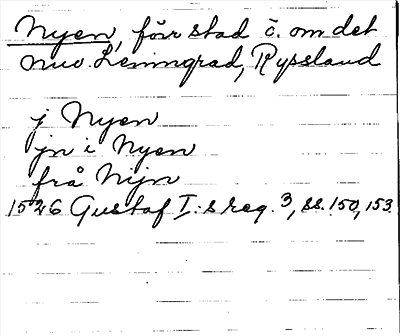 Nyen, förr stad ö. om det
nuv. Leningrad, Ryssland
j Nyen
jn i Nyen
frå Nijn
1526 Gustaf I:s reg. 3, ss. 150, 153.